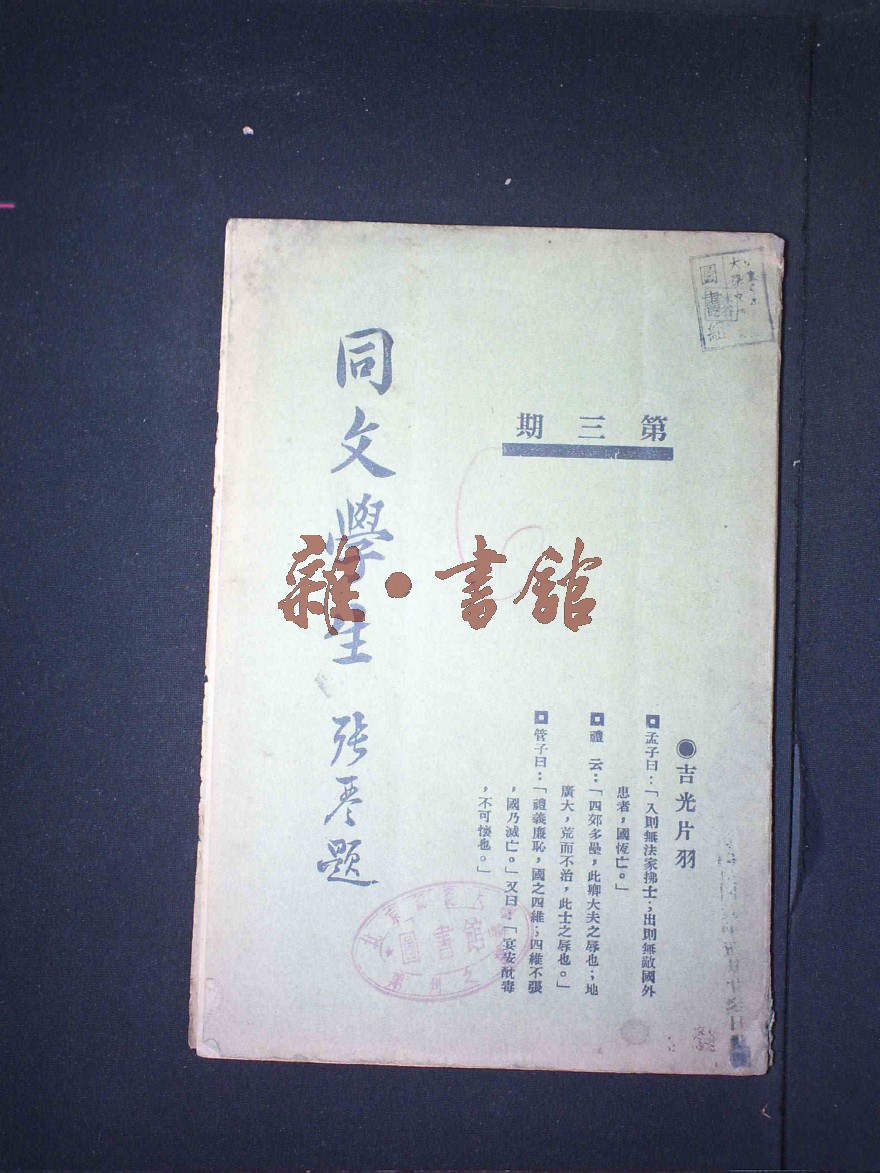 第三期
●吉光片羽
孟子曰：「入則無法家拂士；出則無敵國外
患者，國恆亡。」
禮　云：「四郊多壘，此卿大夫之辱也；地
廣大，荒而不治，此士之辱也。」
管子曰：「禮義廉恥，國之四維；四維不張
，國乃滅亡。」又曰：「宴安酖毒
，不可懷也。」
同文學生
張琴題
雜·書館
圖書館
圖書